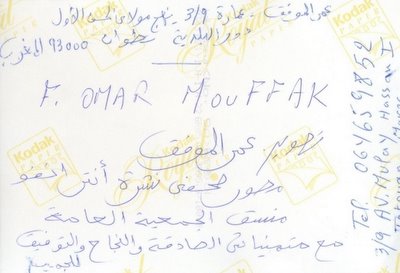 عمر الموفق عمارة 3/9 نهج مولاي الحسن الأول
دور البلدية تطوان 93000 المغرب
F. OMAR MOUFFAK
تصوير عمر الموفق
مصور صحفي نشرة أنتر انفو
منسق الجمعية العامة
مع متمنياتي الصادقة والنجاح والتوفيق
للجميع
Tel. 064659852
3/9 AV. Mulay Hassan I
Tetouan Maroc
Kodak